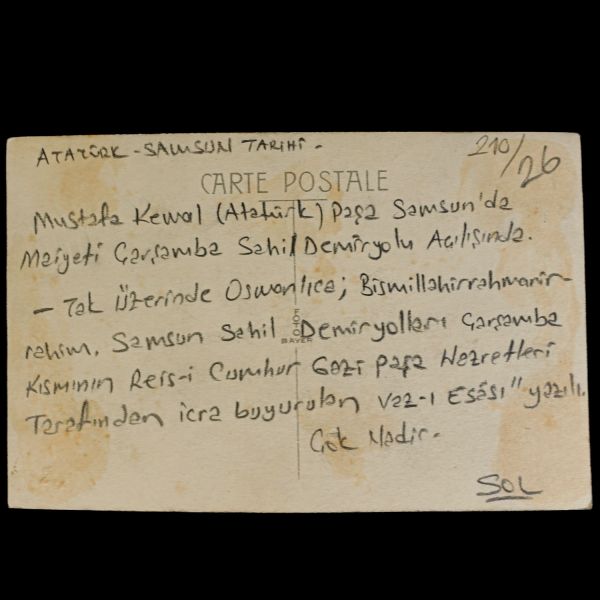 ATATÜRK - SAMSUN TARIHI -
210/26
CARTE POSTALE
Mustafa Kemal (Atatürk) Paşa Samsun'da
Maiyeti Çarşamba Sahil Demiryolu Açılışında.
- Tak Üzerinde Osmanlıca; Bismillahirrahmanir-
rahim, Samsun Sahil Demiryolları Çarşamba
Kısmının Reis-i Cumhur Gazi Paşa Hazretleri
Tarafından icra buyurulan vaz-ı Esâsı" yazılı.
Çok Nadir.
FOTO
BAYER
SOL